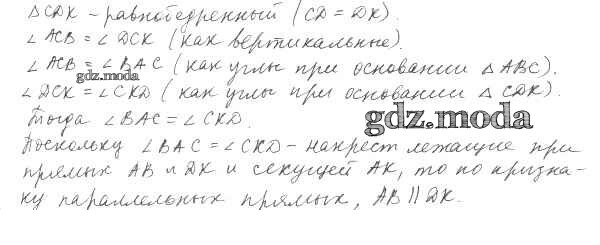 △ CDK – равнобедренный (CD = DK).
∠ ACB = ∠ DCK (как вертикальные).
∠ ACB = ∠ BAC (как углы при основании △ ABC).
gdz.moda
∠ DCK = ∠ CKD (как углы при основании △ CDK).
Тогда ∠ BAC = ∠ CKD.
gdz.moda
Поскольку ∠ BAC = ∠ CKD – накрест лежащие при
прямых AB и DK и секущей AK, то по призна-
ку параллельных прямых, AB || DK.